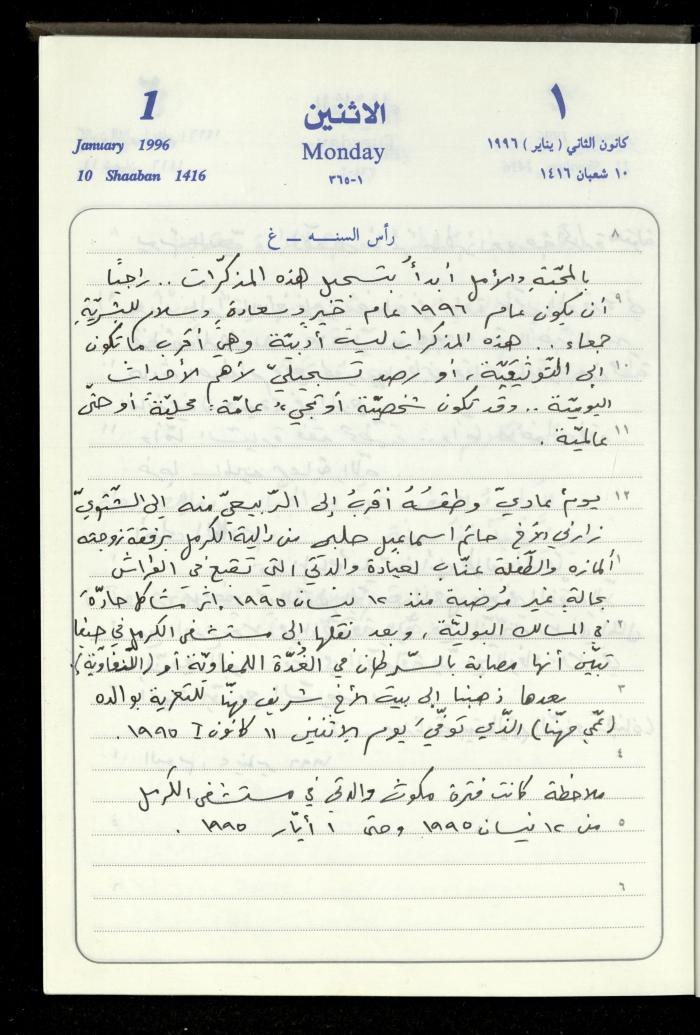 1
الاثنين
١
January 1996
Monday
كانون الثاني ( يناير ) ١٩٩٦
10 Shaaban 1416
٣٦٥-١
١٠ شعبان ١٤١٦
رأس السنـــه - غ
٨
بالمحبّة والأمل أبدأ بتسجيل هذه المذكّرات .. راجيًا
٩
أن يكون عام ١٩٩٦ عام خير وسعادة وسلام للبشريّة
جمعاء .. هذه المذكرات ليست أدبيّة وهي أقرب ما تكون
١٠
إلى التّوثيقيّة، أو رصد تسجيليّ لأهم الأحداث
اليوميّة .. وقد تكون شخصيّة أو عامّة: محليّة أو حتّى
١١
عالميّة.
١٢
يوم عاديّ وطقسُهُ أقربُ إلى الرّبيعيّ منه الى الشّتويّ
زارني الأخ حاتم اسماعيل حلبي من دالية الكرمل برفقة زوجته
١
ألمازه والطّفلة عنّاب لعيادة والدتي التي تقبع في الفراش
بحالة غير مُرضية منذ ١٢ نيسان ١٩٩٥ إثر مشاكل حادّة
٢
في المسالك البوليّة، وبعد نقلها إلى مستشفى الكرمل في حيفا
تبيّن أنها مصابة بالسّرطان في الغُدّة اللمفاويّة أو (اللّنفاويّة).
٣
بعدها ذهبنا إلى بيت الأخ شريف مهنّا للتعزية بوالده
(عمّي مهنّا) الذّي توفّي يوم الاثنين ١١ كانون I ١٩٩٥.
٤
ملاحظة كانت فترة مكوث والدتي في مستشفى الكرمل
٥
من ١٢ نيسان ١٩٩٥ وحتى ١ أيّار ١٩٩٥ .
٦